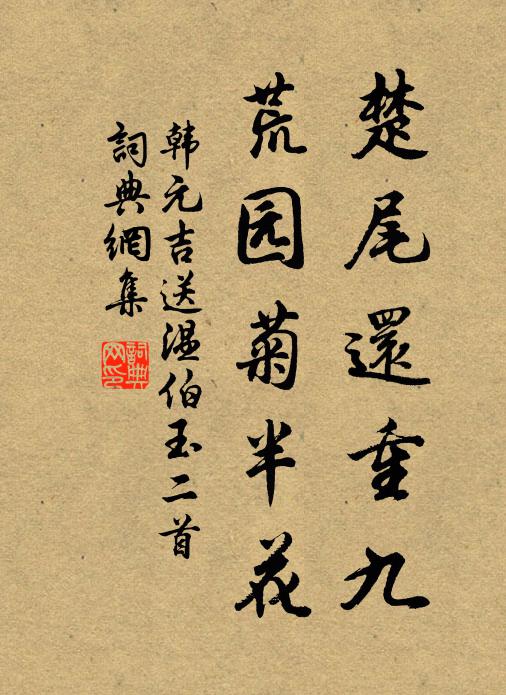 楚尾還重九
荒园菊半花
韩元吉送温伯玉二首
詞典網集
詞典網印